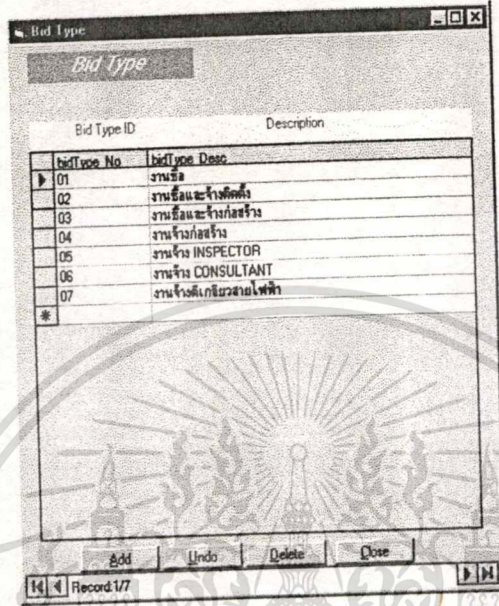 Bid Type
Bid Type
Bid Type ID Description
bidType_No bidType_Desc
01 งานซื้อ
02 งานซื้อและจ้างติดตั้ง
03 งานซื้อและจ้างก่อสร้าง
04 งานจ้างก่อสร้าง
05 งานจ้าง INSPECTOR
06 งานจ้าง CONSULTANT
07 งานจ้างตีเกลียวสายไฟฟ้า
Add Undo Delete Close
Record:1/7